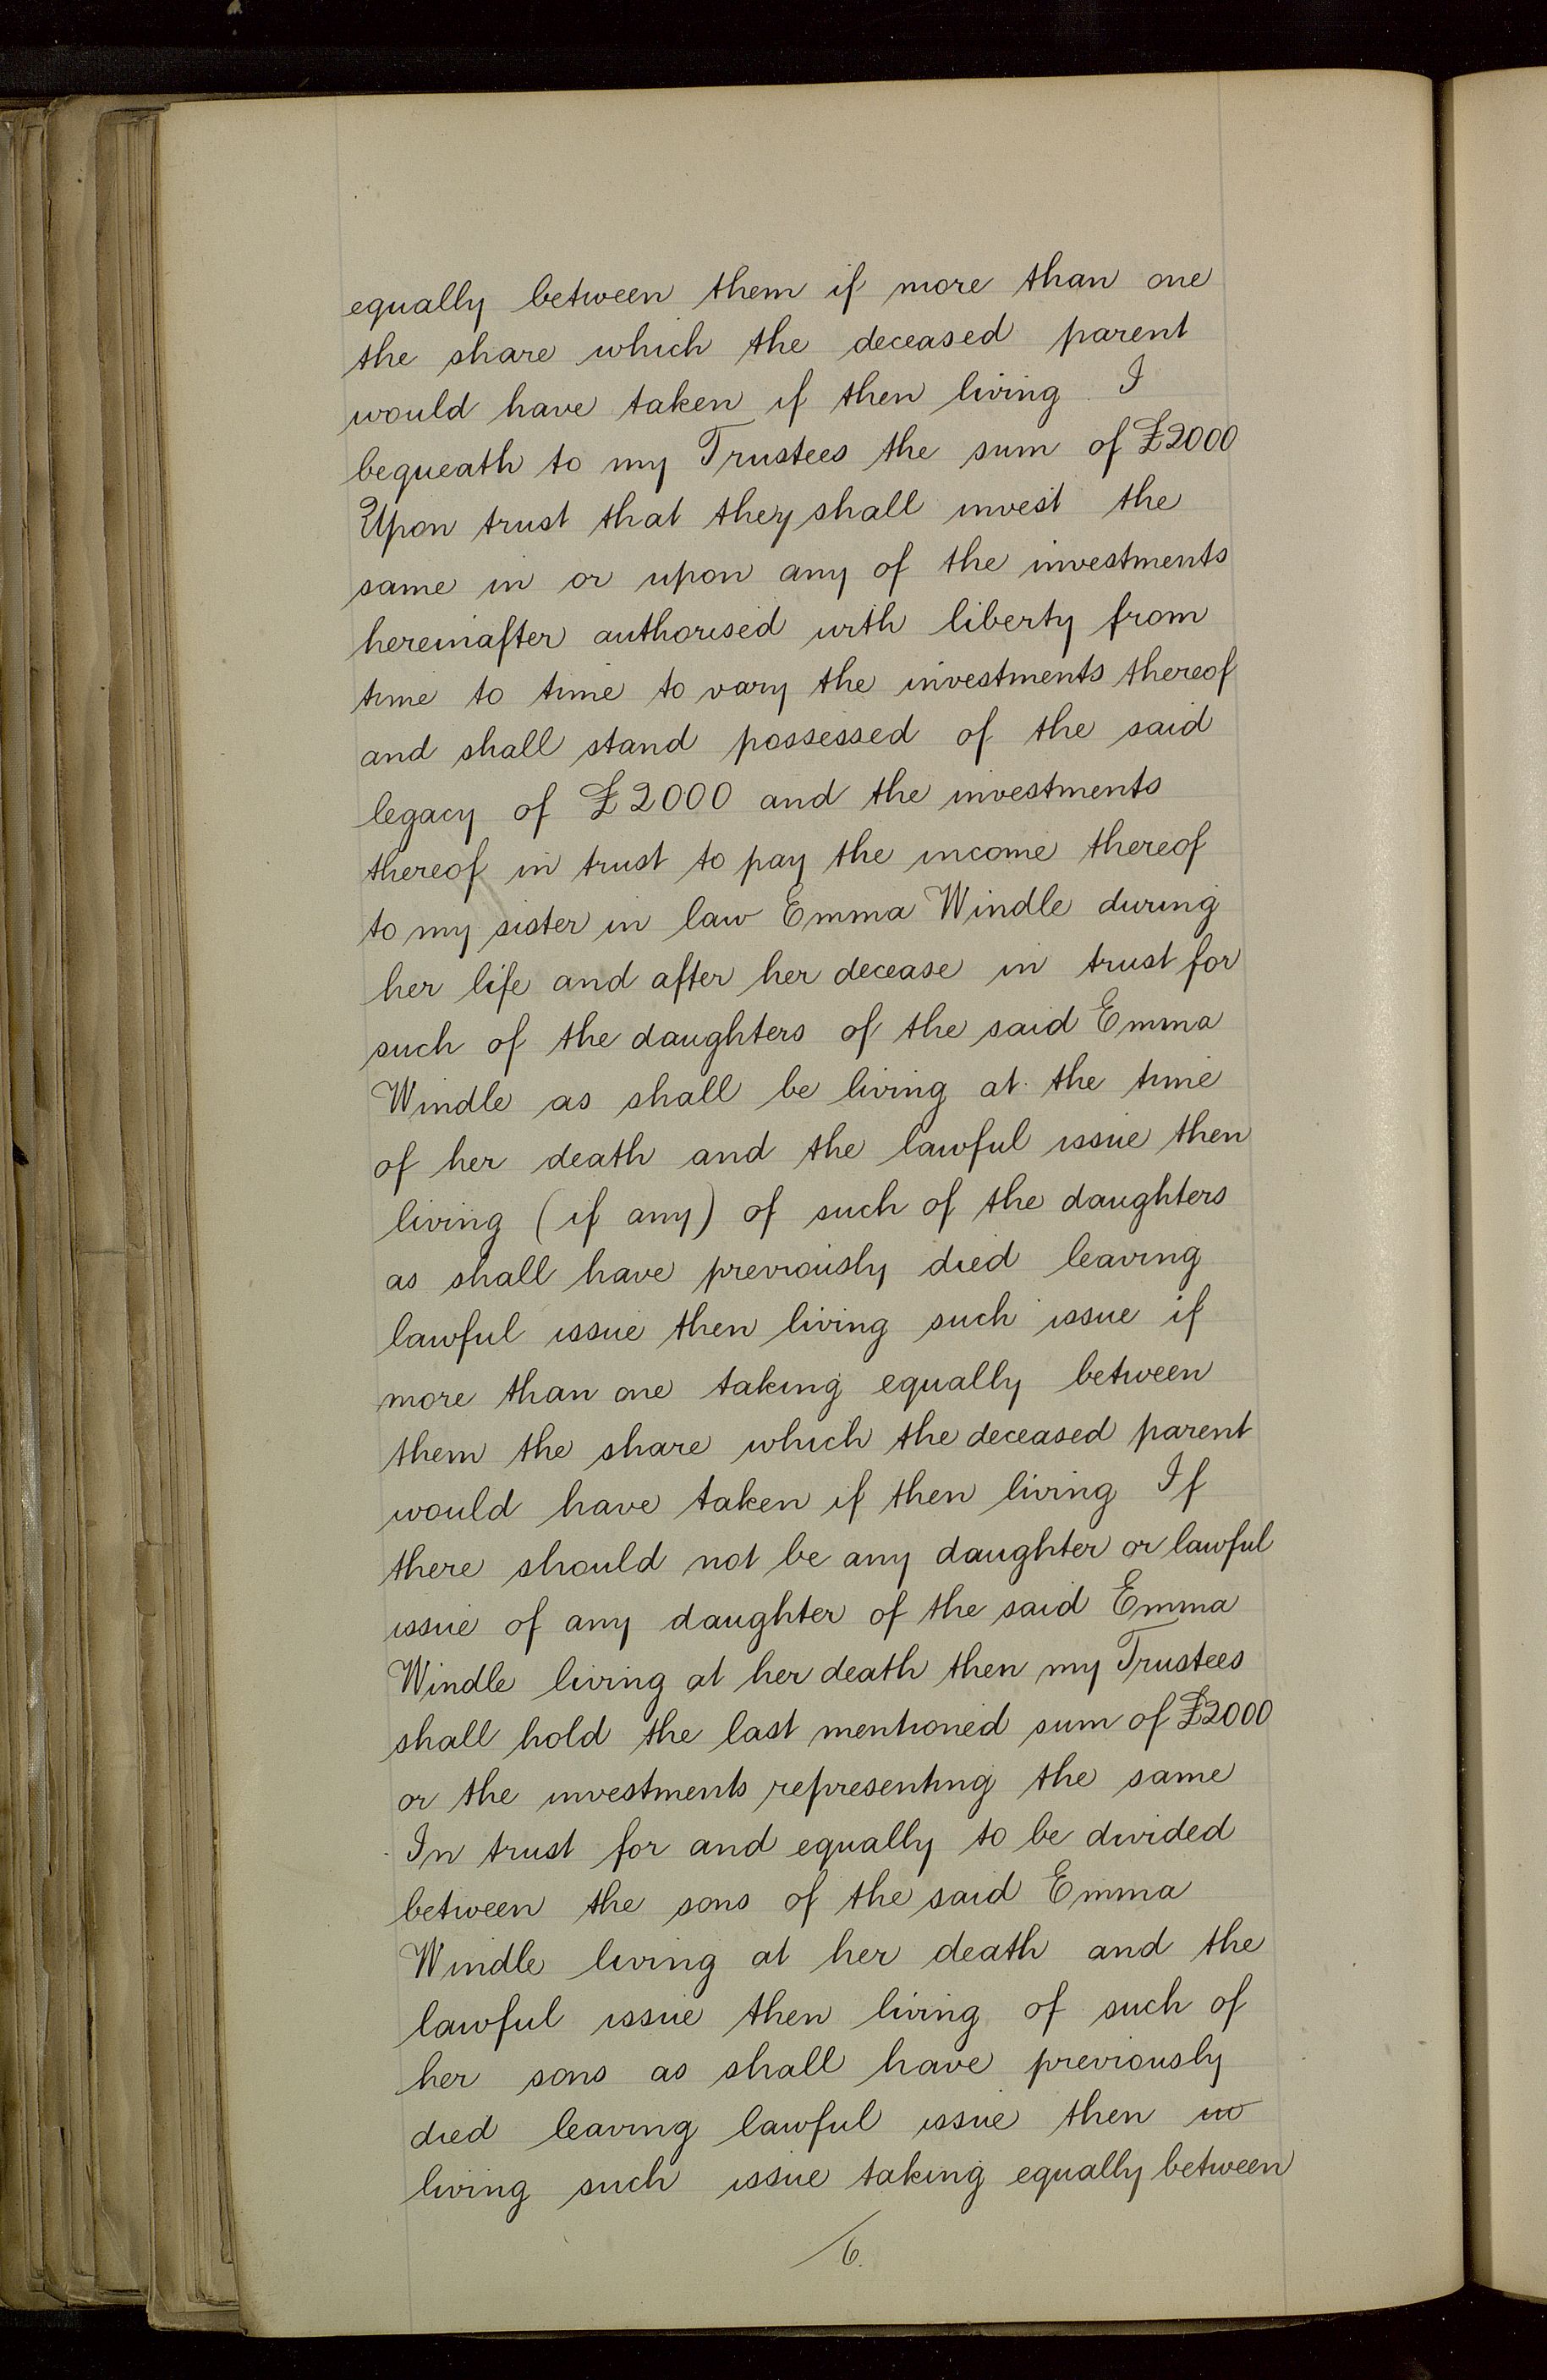 equally between them if more than one
the share which the deceased parent
would have taken if then living I
bequeath to my Trustees the sum of £2000
Upon trust that they shall invest the
same in or upon any of the investments
hereinafter authorised with liberty from
time to time to vary the investments thereof
and shall stand possessed of the said
legacy of £2000 and the investments
thereof in trust to pay the income thereof
to my sister in law Emma Windle during
her life and after her decease in trust for
such of the daughters of the said Emma
Windle as shall be living at the time
of her death and the lawful issue then
living (if any) of such of the daughters
as shall have previously died leaving
lawful issue then living such issue if
more than one taking equally between
them the share which the deceased parent
would have taken if then living If
there should not be any daughter or lawful
issue of any daughter of the said Emma
Windle living at her death then my Trustees
shall hold the last mentioned sum of £2000
or the investments representing the same
In trust for and equally to be divided
between the sons of the said Emma
Windle living at her death and the
lawful issue then living of such of
her sons as shall have previously
died leaving lawful issue then
living such issue taking equally between
/6.